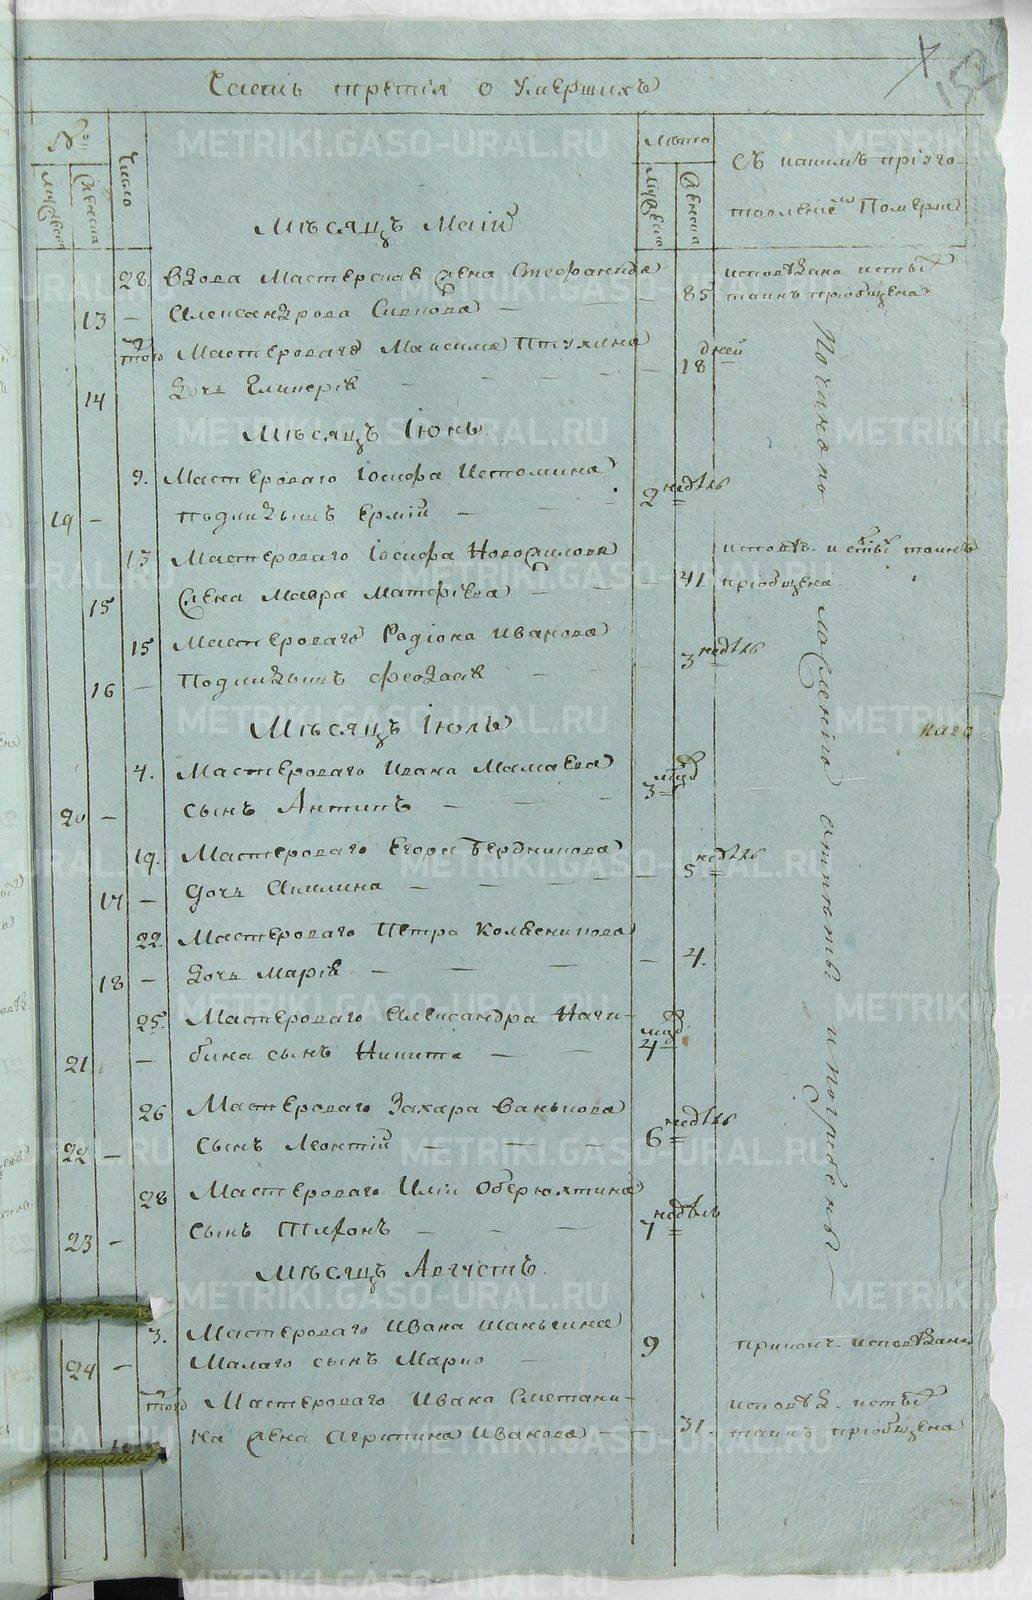 152
Часть третія о умершихъ
№
мужеска
женска
число
Лѣто
мужеско
женска
Съ какимъ пріуго-
товленіемъ Померли
Мѣсяцъ Маій
28 вдова Мастерская жена Стефанида
13 — Александрова — 85
исповѣдана и стых
таинъ пріобщена
того Мастероваго Максима Птухина
14 дочь Гликерія — 18 дней
Мѣсяцъ Іюнь
9. Мастероваго Іосифа Истомина
19 — подкидышъ Ермій — 2 недѣль
13 Мастероваго Іосифа Новожилова
15 жена Мавра Матфіева — 41.
исповѣ. и стых таинъ
пріобщена
15 Мастероваго Родіона Иванова
16 — Подкидышъ — 3 недѣль
Мѣсяцъ Іюль
4. Мастероваго Ивана Мамаева
20 — сынъ Антипъ — 3 мцд
19. Мастероваго Егора Бердникова
17 — дочь Акилина — 5 недѣль
22. Мастероваго Петра Колесникова
18 — дочь Марія — 4.
25. Мастероваго Александра Наги-
21 — бина сынъ Никита — 4 мцд
26 Мастероваго Захара Ванькова
22 — сынъ Леонтій — 6 недѣль
28 Мастероваго Иліи Оберюхтина
23 — сынъ Тифонъ — 7 недѣль
Мѣсяцъ Августъ.
3. Мастероваго Ивана Шаньгина
24 — Малаго сынъ Марко — 9
исповѣдан
того Мастероваго Ивана Сметани-
на жена Агрипина Иванова — 31.
исповѣд. и стых
таинъ пріобщена
По чиноположенію отпѣты и погребены
METRIKI.GASO-URAL.RU